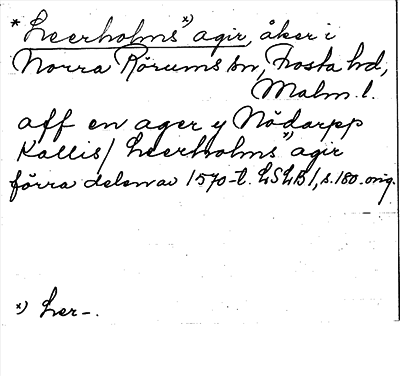 * Leerholms x) agir, åker i
Norra Rörums sn, Frosta hd,
Malm. l.
aff en ager y Nödarpp
Kallis / Leerholms x) agir
förra delen av 1570-t. LSLB 1, s. 180. orig.
x) Ler-.